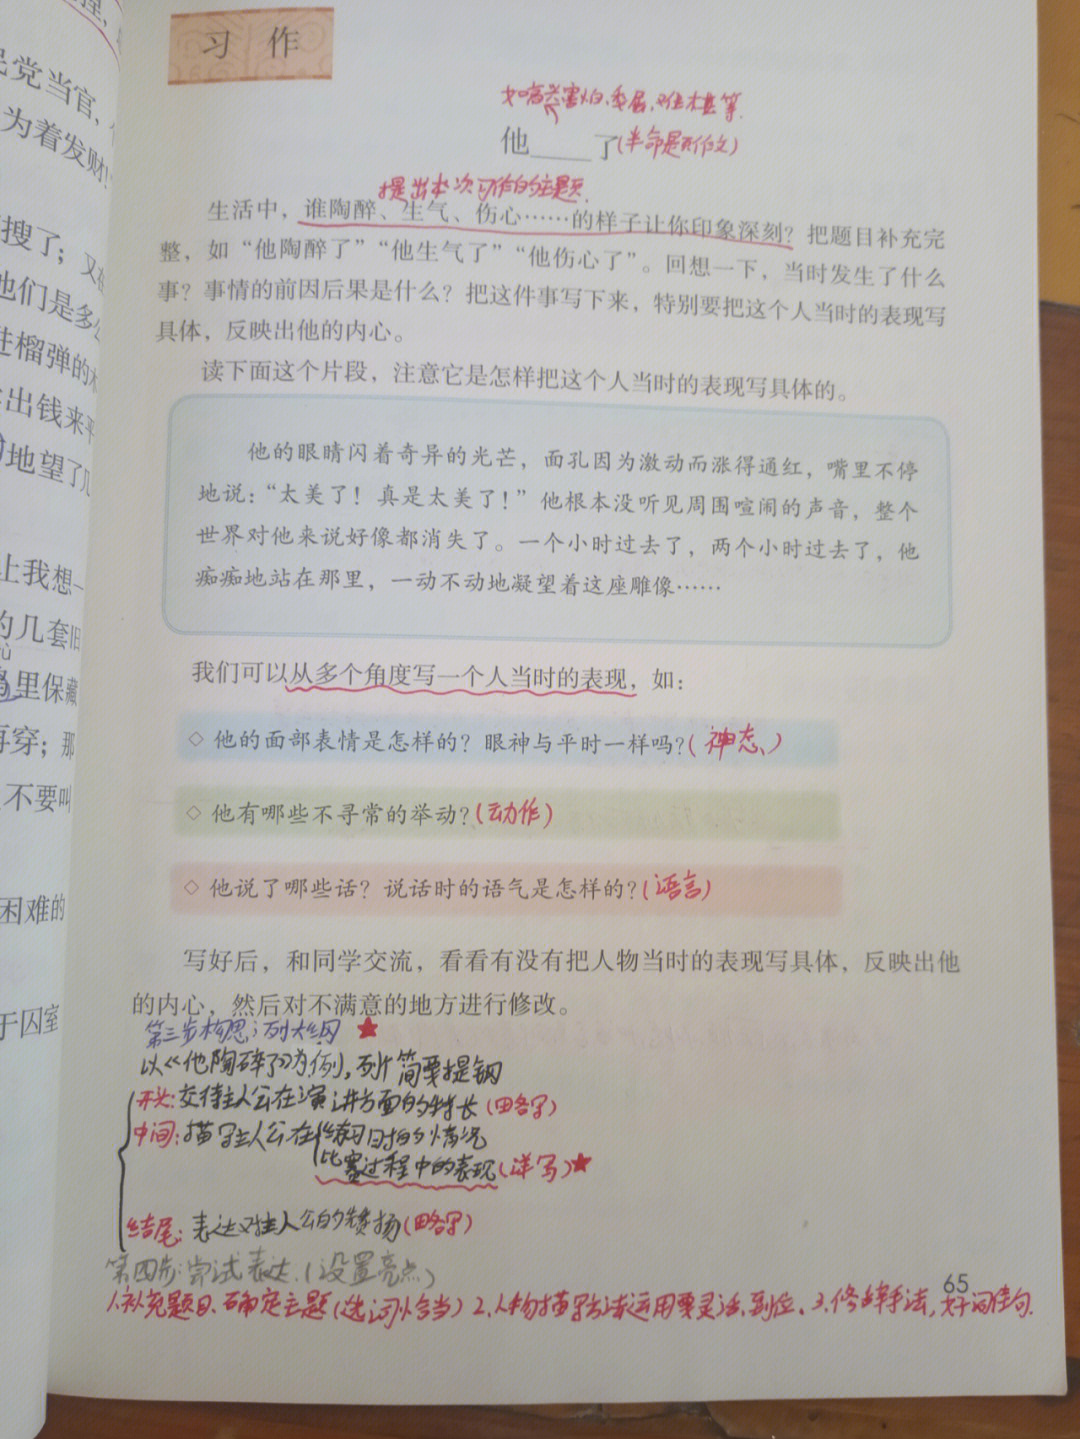 习 作
如高兴、害怕、委屈、尴尬等.
他____了(半命题作文)
提出本次习作的主题.
生活中，谁陶醉、生气、伤心……的样子让你印象深刻？把题目补充完
整，如“他陶醉了”“他生气了”“他伤心了”。回想一下，当时发生了什么
事？事情的前因后果是什么？把这件事写下来，特别要把这个人当时的表现写
具体，反映出他的内心。
读下面这个片段，注意它是怎样把这个人当时的表现写具体的。
他的眼睛闪着奇异的光芒，面孔因为激动而涨得通红，嘴里不停
地说：“太美了！真是太美了！”他根本没听见周围喧闹的声音，整个
世界对他来说好像都消失了。一个小时过去了，两个小时过去了，他
痴痴地站在那里，一动不动地凝望着这座雕像……
我们可以从多个角度写一个人当时的表现，如：
◇ 他的面部表情是怎样的？眼神与平时一样吗？(神态、)
◇ 他有哪些不寻常的举动？(动作)
◇ 他说了哪些话？说话时的语气是怎样的？(语言)
写好后，和同学交流，看看有没有把人物当时的表现写具体，反映出他
的内心，然后对不满意的地方进行修改。
第三步构思；列大纲 ★
以《他陶碎了》为例，列个简要提钢
开头：交待主人公在演讲方面的特长(略写)
中间：描写主人公在练习日拍的情况
比赛过程中的表现(详写)★
结尾：表达对主人公的赞扬(略写)
第四步：尝试表达.(设置亮点)
1.补充题目、确定主题(选词恰当) 2.人物描写方法运用要灵活、到位. 3.修辞手法,好词佳句.
65
民党当官，
为着发财！
搜了；又
他们是多么
挂榴弹的木
出钱来平
地望了几
上我想一
的几套旧
里保藏
再穿；那
不要叫
困难的
于囚室